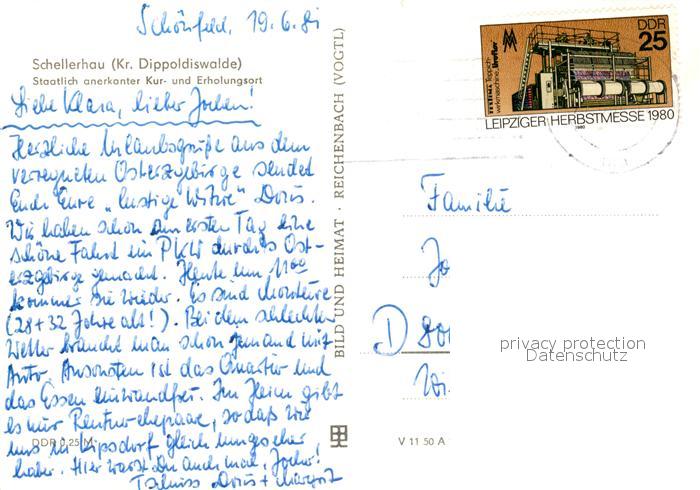 Schönfeld, 19.6.81
Schellerhau (Kr. Dippoldiswalde)
Staatlich anerkannter Kur- und Erholungsort
Liebe Klara, lieber Jochen!
Herzliche Urlaubsgrüße aus dem
verregneten Osterzgebirge sendet
Euch Eure „lustige Witwe" Doris.
Wir haben schon am ersten Tag eine
schöne Fahrt im PKW durchs Ost-
erzgebirge gemacht. Heute um 11 00
kommen sie wieder. Es sind
(28+32 Jahre alt!). Bei dem schlechten
Wetter braucht man schon jemand mit
Auto. Ansonsten ist das Quartier und
das Essen einwandfrei. Im Heim gibt
es nur Rentnerehepaare, so daß wir
uns in Kipsdorf gleich umgesehen
haben. Hier warst Du auch mal, Jochen!
Tschüss Doris + Margot
DDR 0,25 M
BILD UND HEIMAT · REICHENBACH (VOGTL)
V 11 50 A
DDR
25
LEIPZIGER HERBSTMESSE 1980
1980
Familie
Jo
D
privacy protection
Datenschutz